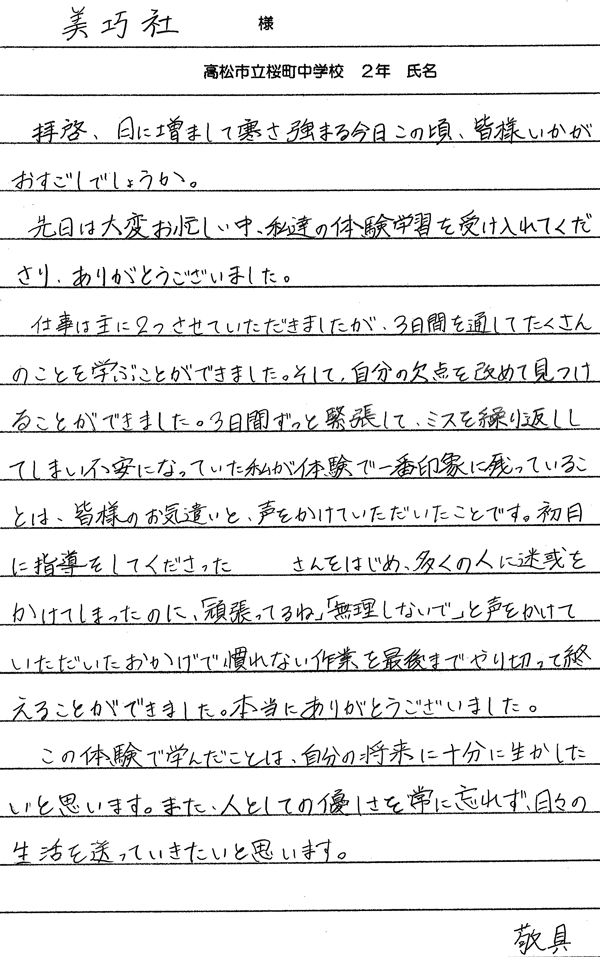 美巧社 様
高松市立桜町中学校 2年 氏名
拝啓、日に増まして寒さ強まる今日この頃、皆様いかが
おすごしでしょうか。
先日は大変お忙しい中、私達の体験学習を受け入れてくだ
さり、ありがとうございました。
仕事は主に2つさせていただきましたが、3日間を通してたくさん
のことを学ぶことができました。そして、自分の欠点を改めて見つけ
ることができました。3日間ずっと緊張して、ミスを繰り返しし
てしまい不安になっていた私が体験で一番印象に残っているこ
とは、皆様のお気遣いと、声をかけていただいたことです。初日
に指導をしてくださった さんをはじめ、多くの人に迷惑を
かけてしまったのに、「頑張ってるね」「無理しないで」と声をかけて
いただいたおかげで慣れない作業を最後までやり切って終
えることができました。本当にありがとうございました。
この体験で学んだことは、自分の将来に十分に生かした
いと思います。また、人としての優しさを常に忘れず、日々の
生活を送っていきたいと思います。
敬具